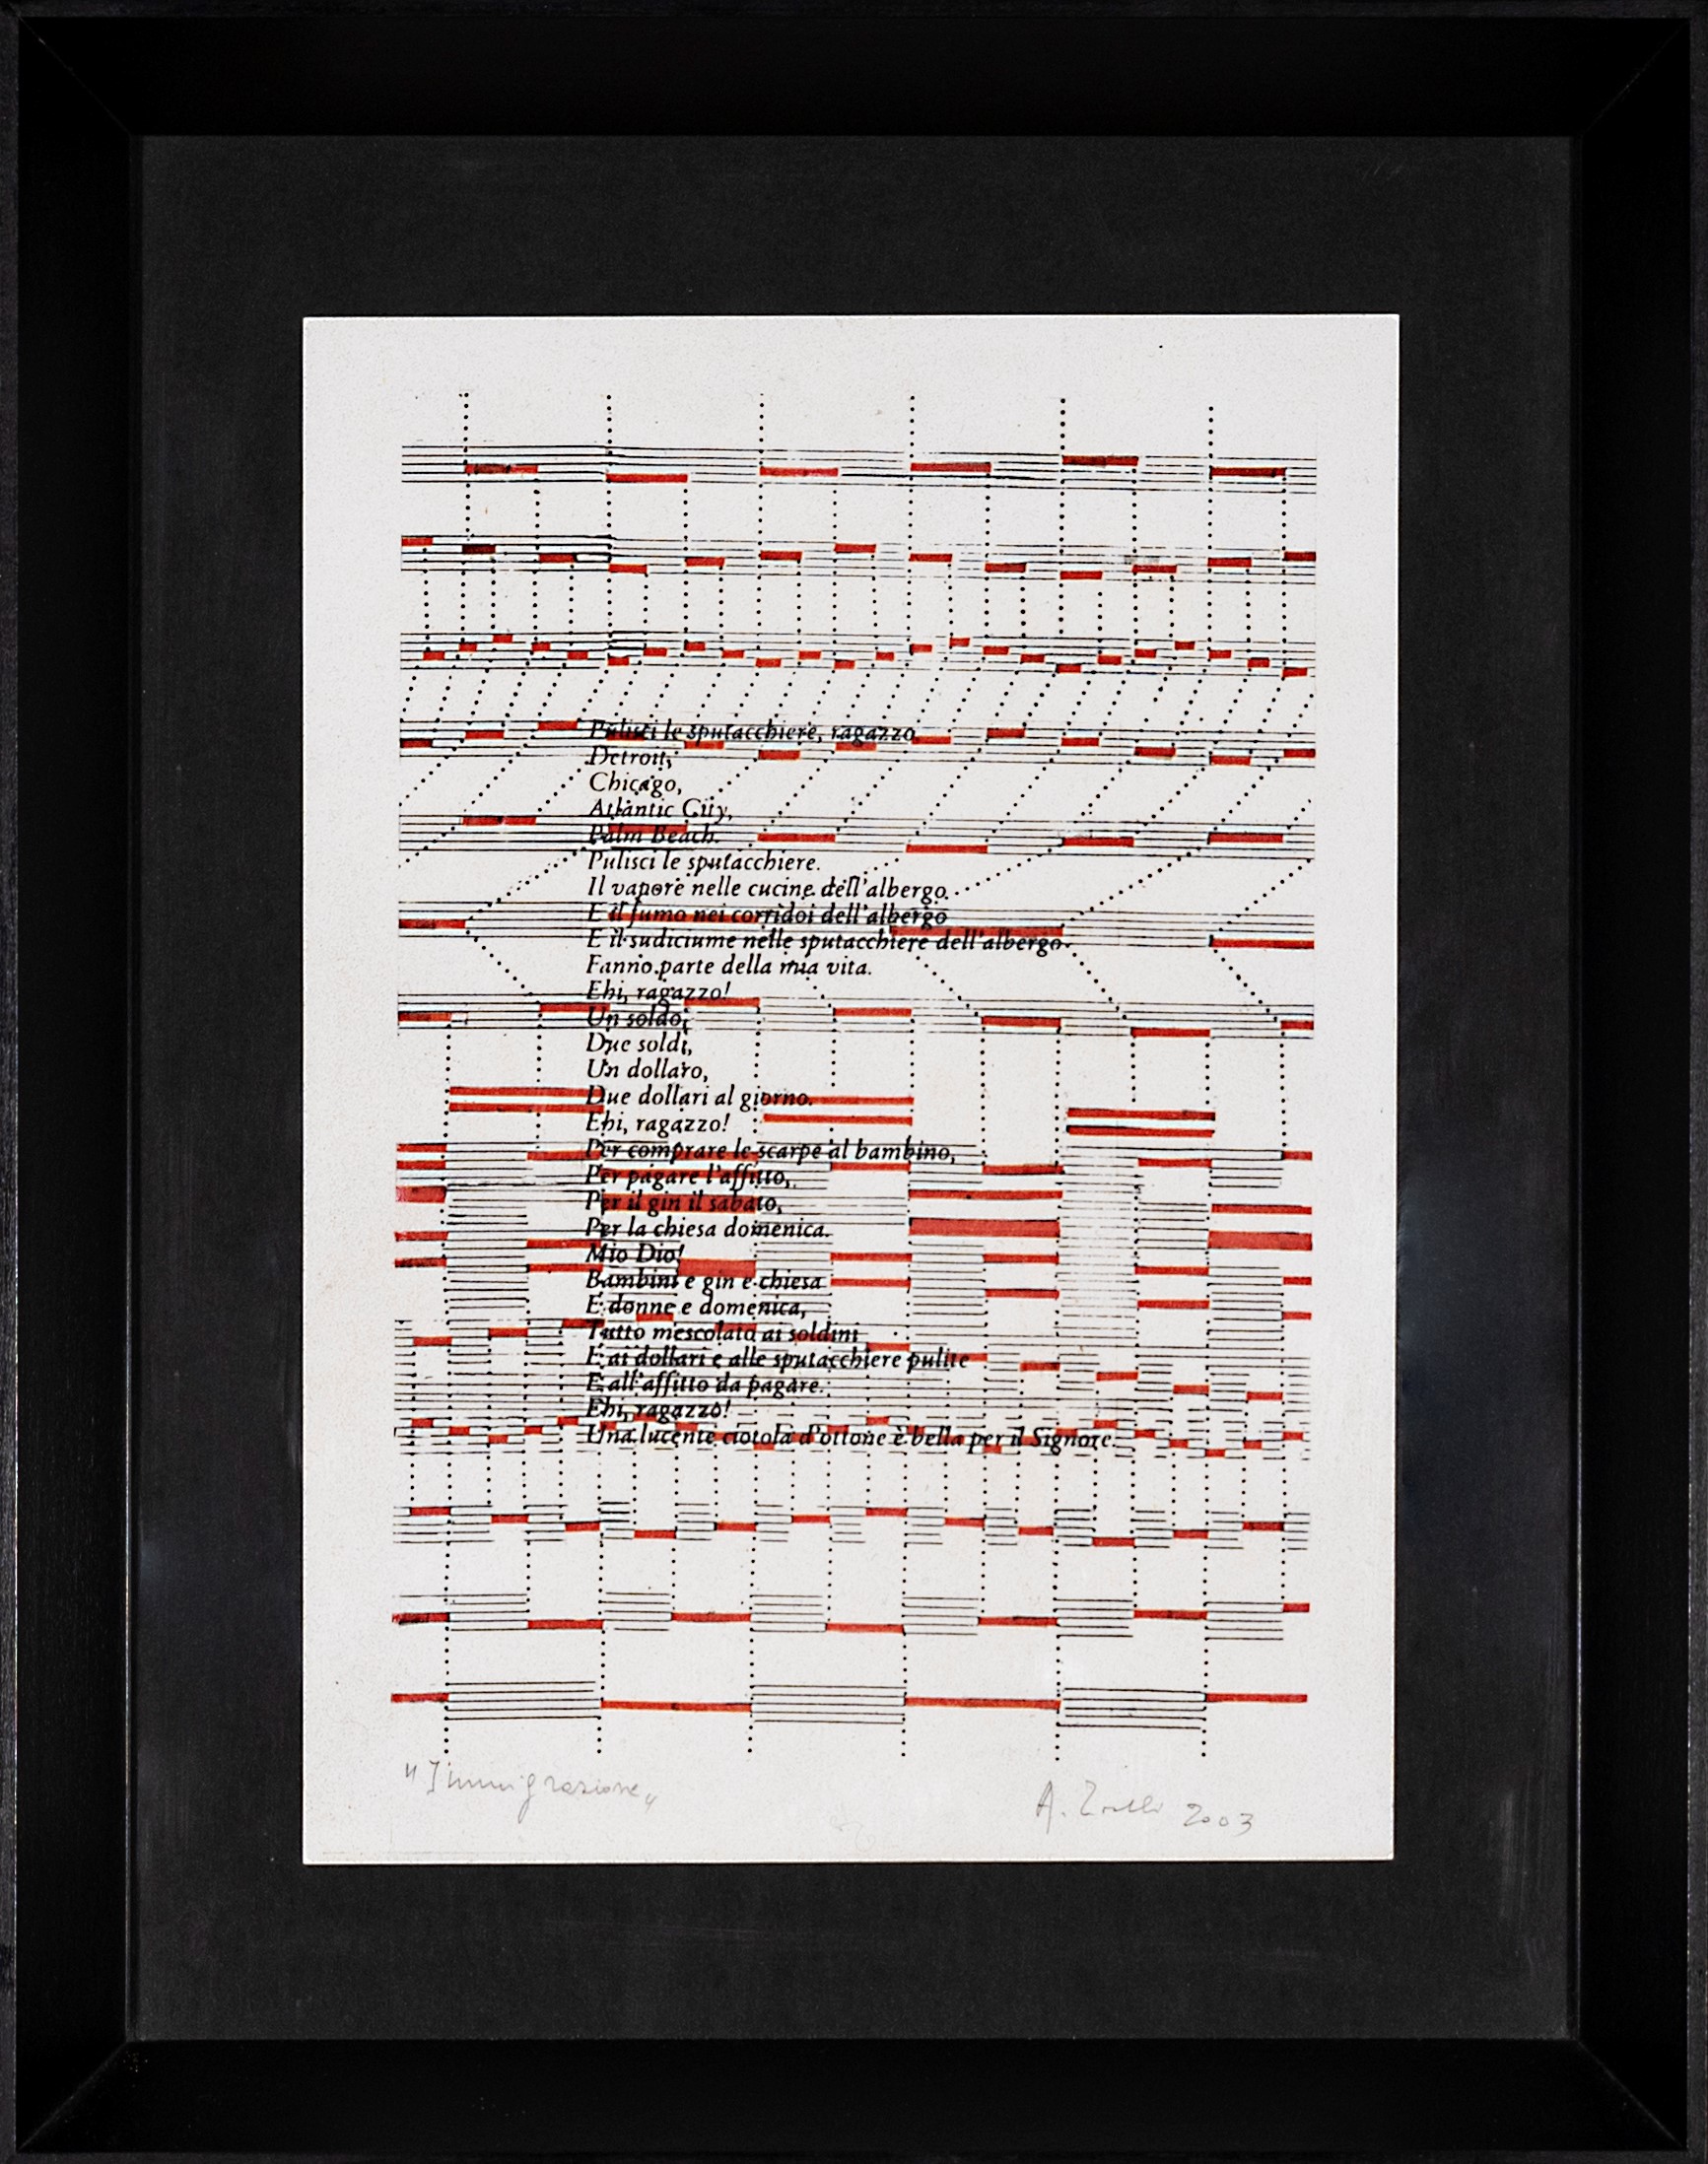 Pulisci le sputacchiere, ragazzo.
Detroit,
Chicago,
Atlantic City,
Palm Beach.
Pulisci le sputacchiere.
Il vapore nelle cucine dell'albergo.
E il fumo nei corridoi dell'albergo
E il sudiciume nelle sputacchiere dell'albergo.
Fanno parte della mia vita.
Ehi, ragazzo!
Un soldo,
Due soldi,
Un dollaro,
Due dollari al giorno.
Ehi, ragazzo!
Per comprare le scarpe al bambino,
Per pagare l'affitto,
Per il gin il sabato,
Per la chiesa domenica.
Mio Dio!
Bambini e gin e chiesa
E donne e domenica,
Tutto mescolato ai soldini
E ai dollari e alle sputacchiere pulite
E all'affitto da pagare.
Ehi, ragazzo!
Una lucente ciotola d'ottone è bella per il Signore.
"Immigrazione"
A. 2003